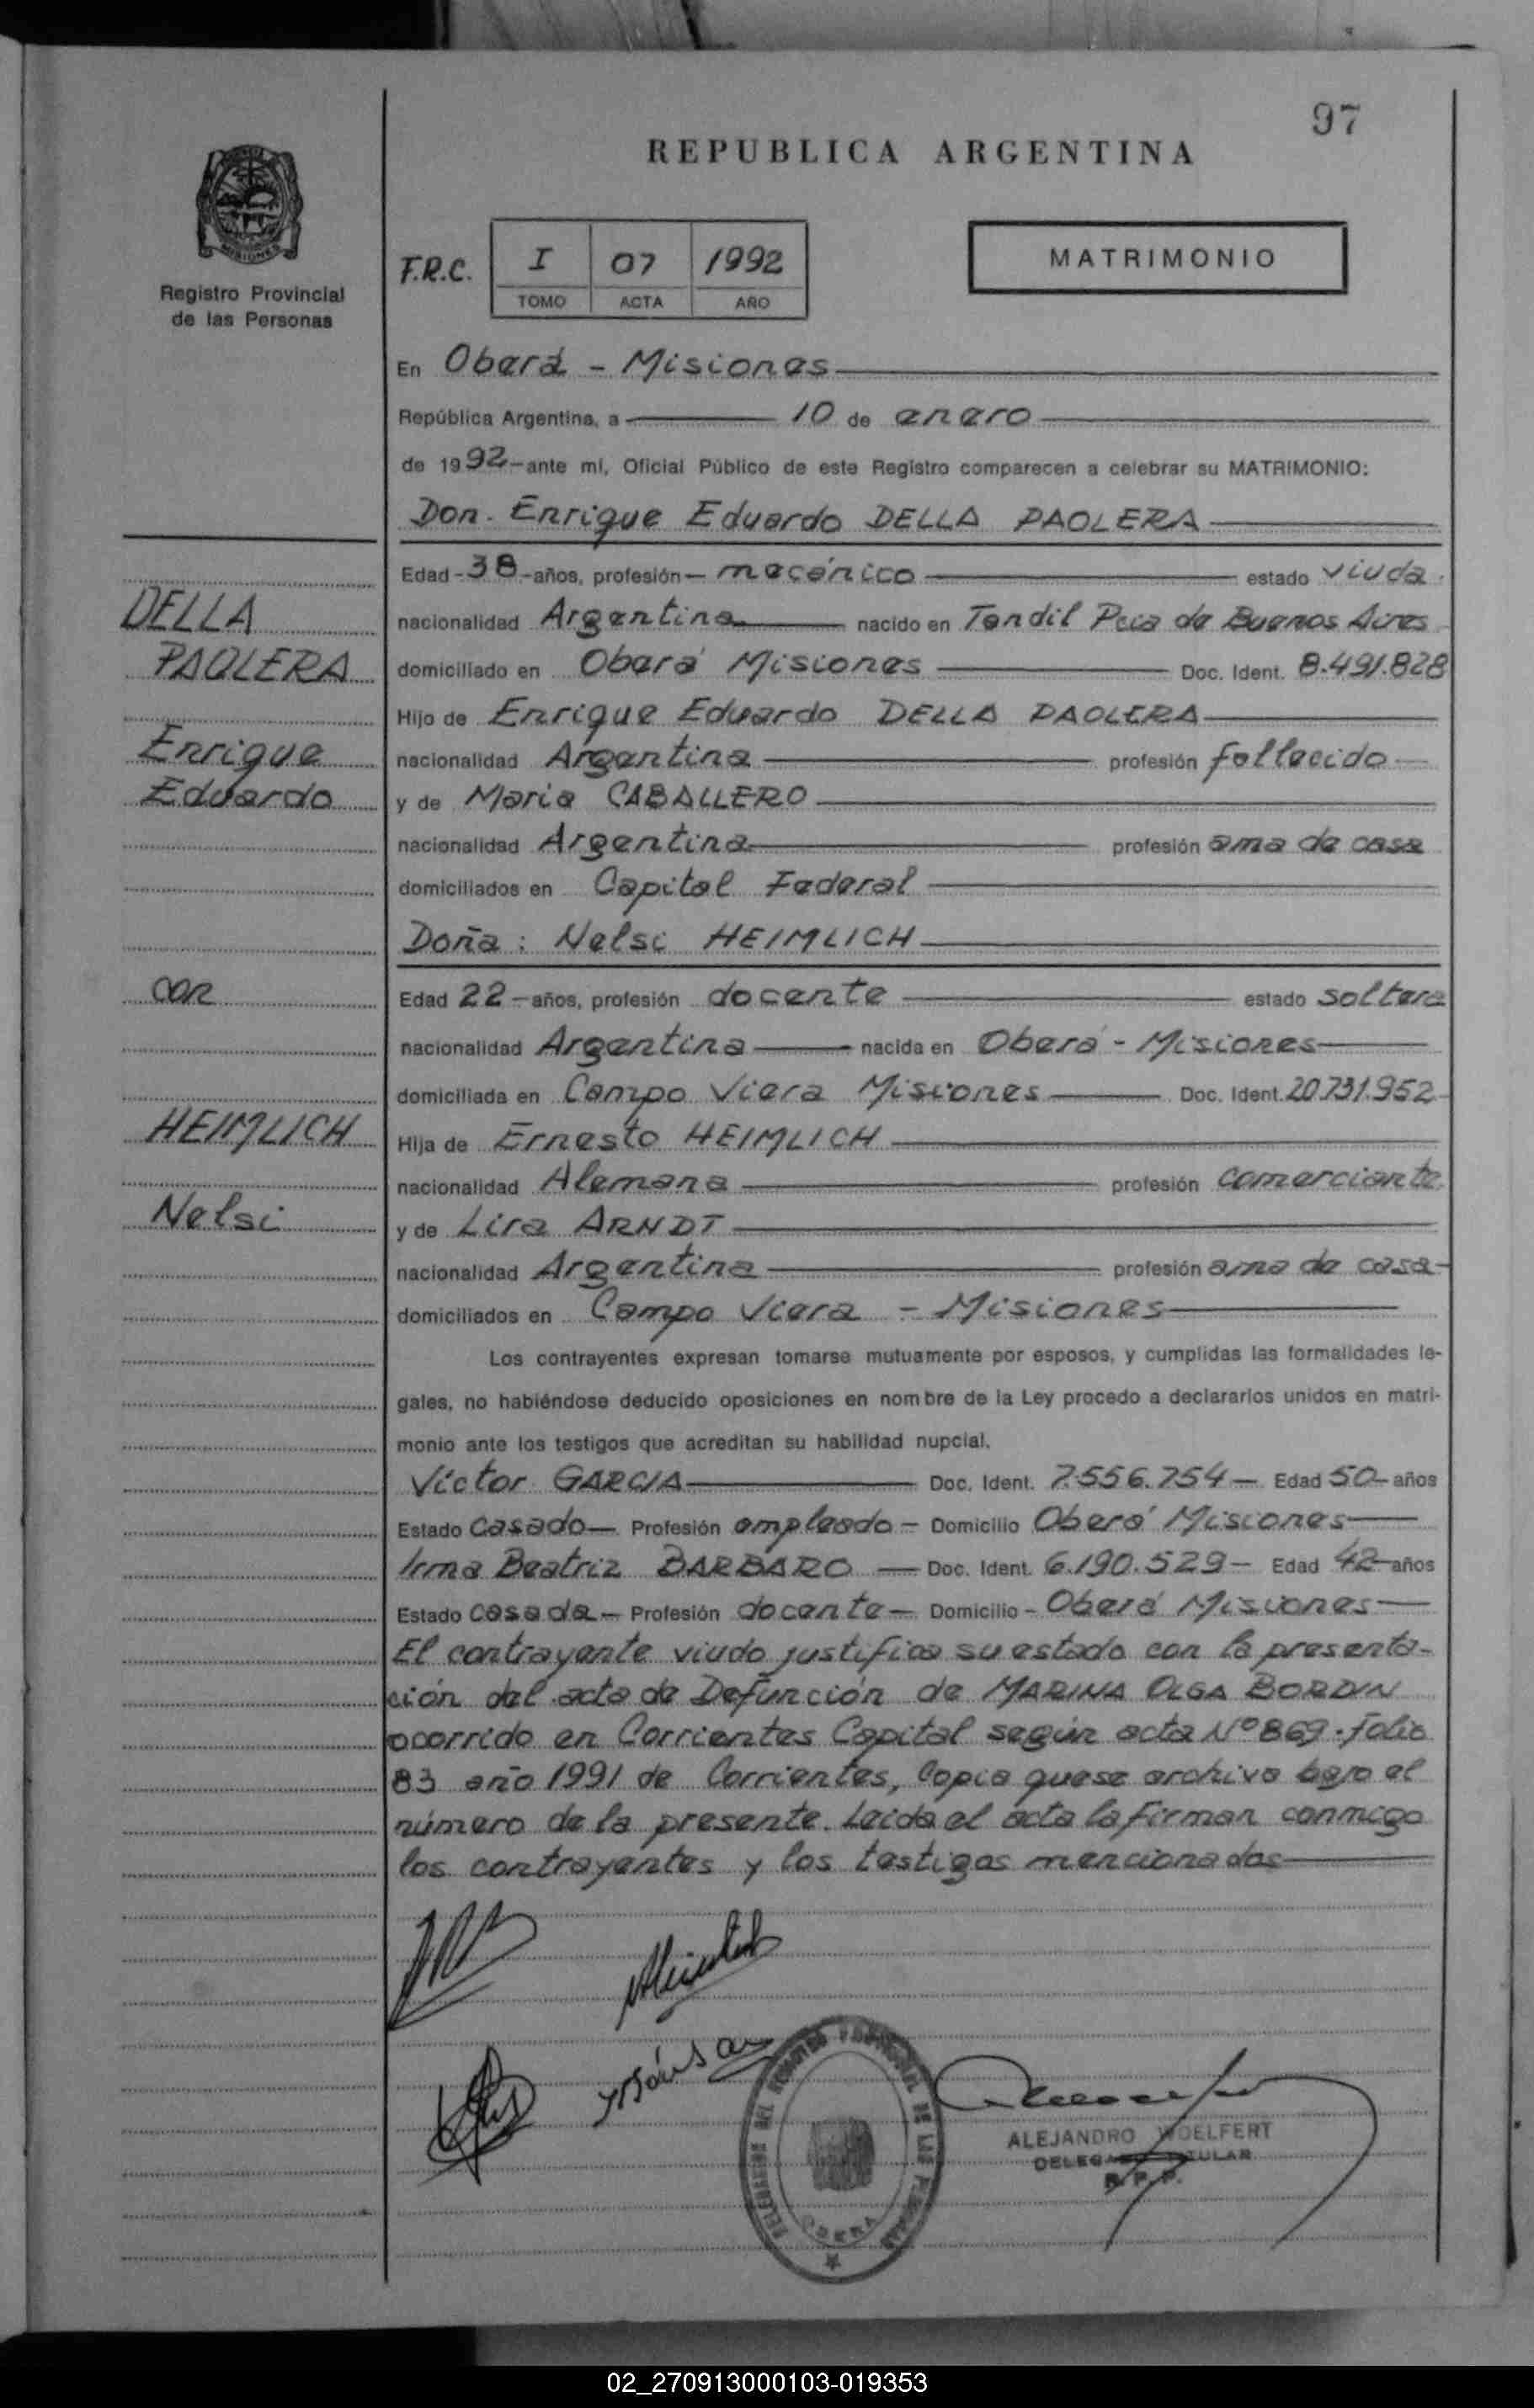 97
REPUBLICA ARGENTINA
Registro Provincial
de las Personas
F.R.C.
I 07 1992
TOMO ACTA AÑO
MATRIMONIO
En Oberá - Misiones
República Argentina, a 10 de enero
de 1992 ante mí, Oficial Público de este Registro comparecen a celebrar su MATRIMONIO:
Don. Enrique Eduardo DELLA PAOLERA
Edad 38 años, profesión mecánico estado viudo
nacionalidad Argentina nacido en Tandil Pcia de Buenos Aires
domiciliado en Oberá Misiones Doc. Ident. 8.491.828
Hijo de Enrique Eduardo DELLA PAOLERA
nacionalidad Argentina profesión fallecido
y de Maria CABALLERO
nacionalidad Argentina profesión ama de casa
domiciliados en Capital Federal
Doña: Nelsi HEIMLICH
Edad 22 años, profesión docente estado soltera
nacionalidad Argentina nacida en Oberá - Misiones
domiciliada en Campo Viera Misiones Doc. Ident. 20.731.952
Hija de Ernesto HEIMLICH
nacionalidad Alemana profesión comerciante
y de Lira ARNDT
nacionalidad Argentina profesión ama de casa
domiciliados en Campo Viera - Misiones
DELLA
PAOLERA
Enrique
Eduardo
con
HEIMLICH
Nelsi
Los contrayentes expresan tomarse mutuamente por esposos, y cumplidas las formalidades le-
gales, no habiéndose deducido oposiciones en nombre de la Ley procedo a declararlos unidos en matri-
monio ante los testigos que acreditan su habilidad nupcial.
Víctor GARCIA Doc. Ident. 7.556.754 Edad 50 años
Estado casado Profesión empleado Domicilio Oberá Misiones
Irma Beatriz BARBARO Doc. Ident. 6.190.529 Edad 42 años
Estado casada Profesión docente Domicilio Oberá Misiones
El contrayente viudo justifica su estado con la presenta-
ción del acta de Defunción de MARINA OLGA BORDIN
ocorrido en Corrientes Capital según acta Nº 869. folio
83 año 1991 de Corrientes, Copia que se archiva bajo el
número de la presente. Leida el acta la firman conmigo
los contrayentes y los testigos mencionados
ALEJANDRO WOELFERT
R. P. P.
OBERA
02_270913000103-019353